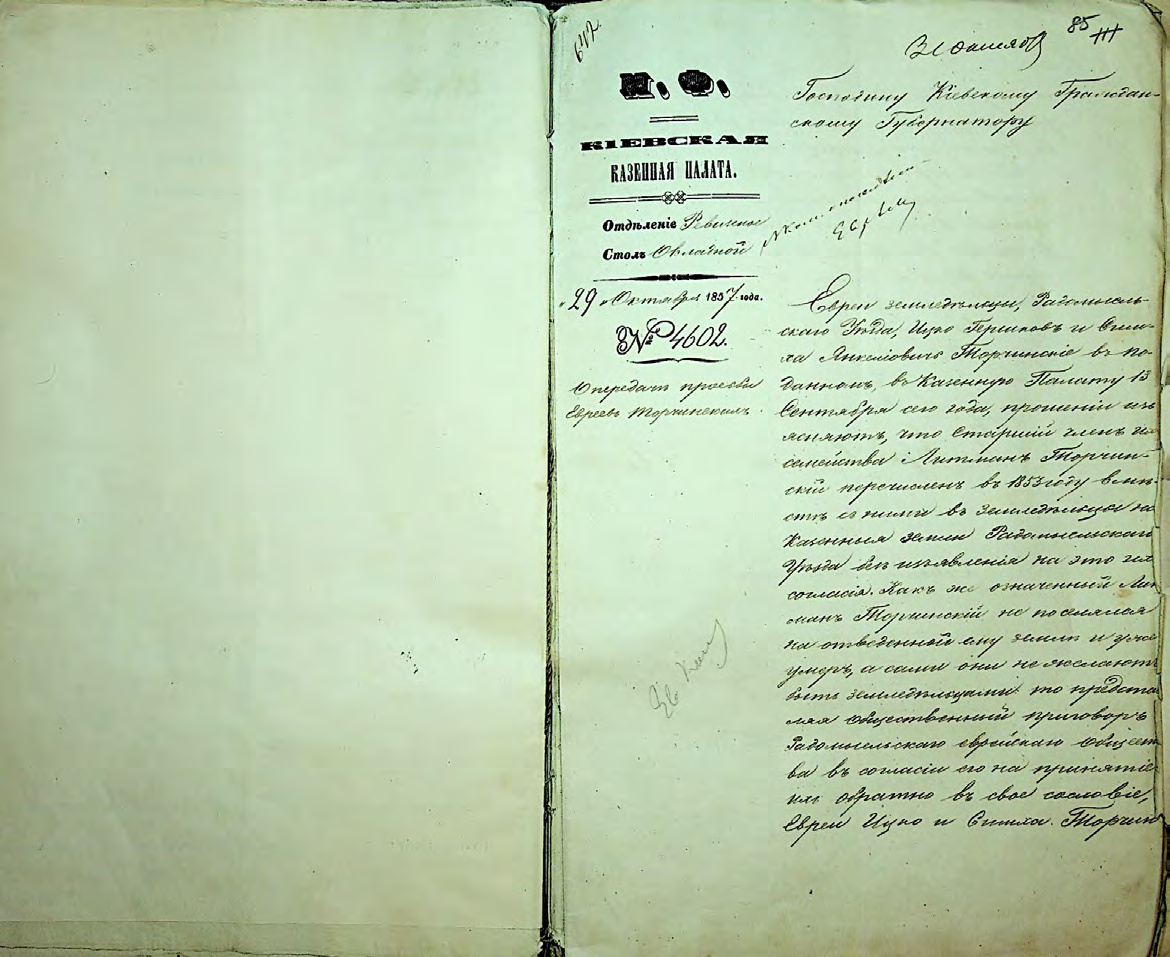 642.
85
М. Ф.
КІЕВСКАЯ
КАЗЕННАЯ ПАЛАТА.
Отдѣленіе Ревизское
Столъ Окладной
„29„ Октября 1857 года.
№ 4602.
О передачѣ просьбы
Евреевъ Торчинскихъ.
Господину Кіевскому Граждан-
скому Губернатору
Евреи земледѣльцы, Радомысль-
скаго Уѣзда, Ицко Гершковъ и Сим-
ха Янкелевичъ Торчинскіе въ по-
данномъ, въ Казенную Палату 13
Сентября сего года, прошеніи изъ
ясняютъ, что Старшій членъ ихъ
семейства Литманъ Торчин-
скій перечисленъ въ 1853 году вмѣ-
стѣ съ ними въ земледѣльцы на
Казенныя земли Радомысльскаго
Уѣзда безъ изъявленія на это ихъ
согласія. Какъ же означенный Лит
манъ Торчинскій не поселялся
на отведенной ему землѣ и уже
умеръ, а сами они не желаютъ
быть земледѣльцами то представ
ляя общественный приговоръ
Радомысльскаго еврейскаго общест
ва въ согласіи его на принятіе
ихъ обратно въ свое сословіе,
Евреи Ицко и Симха Торчин